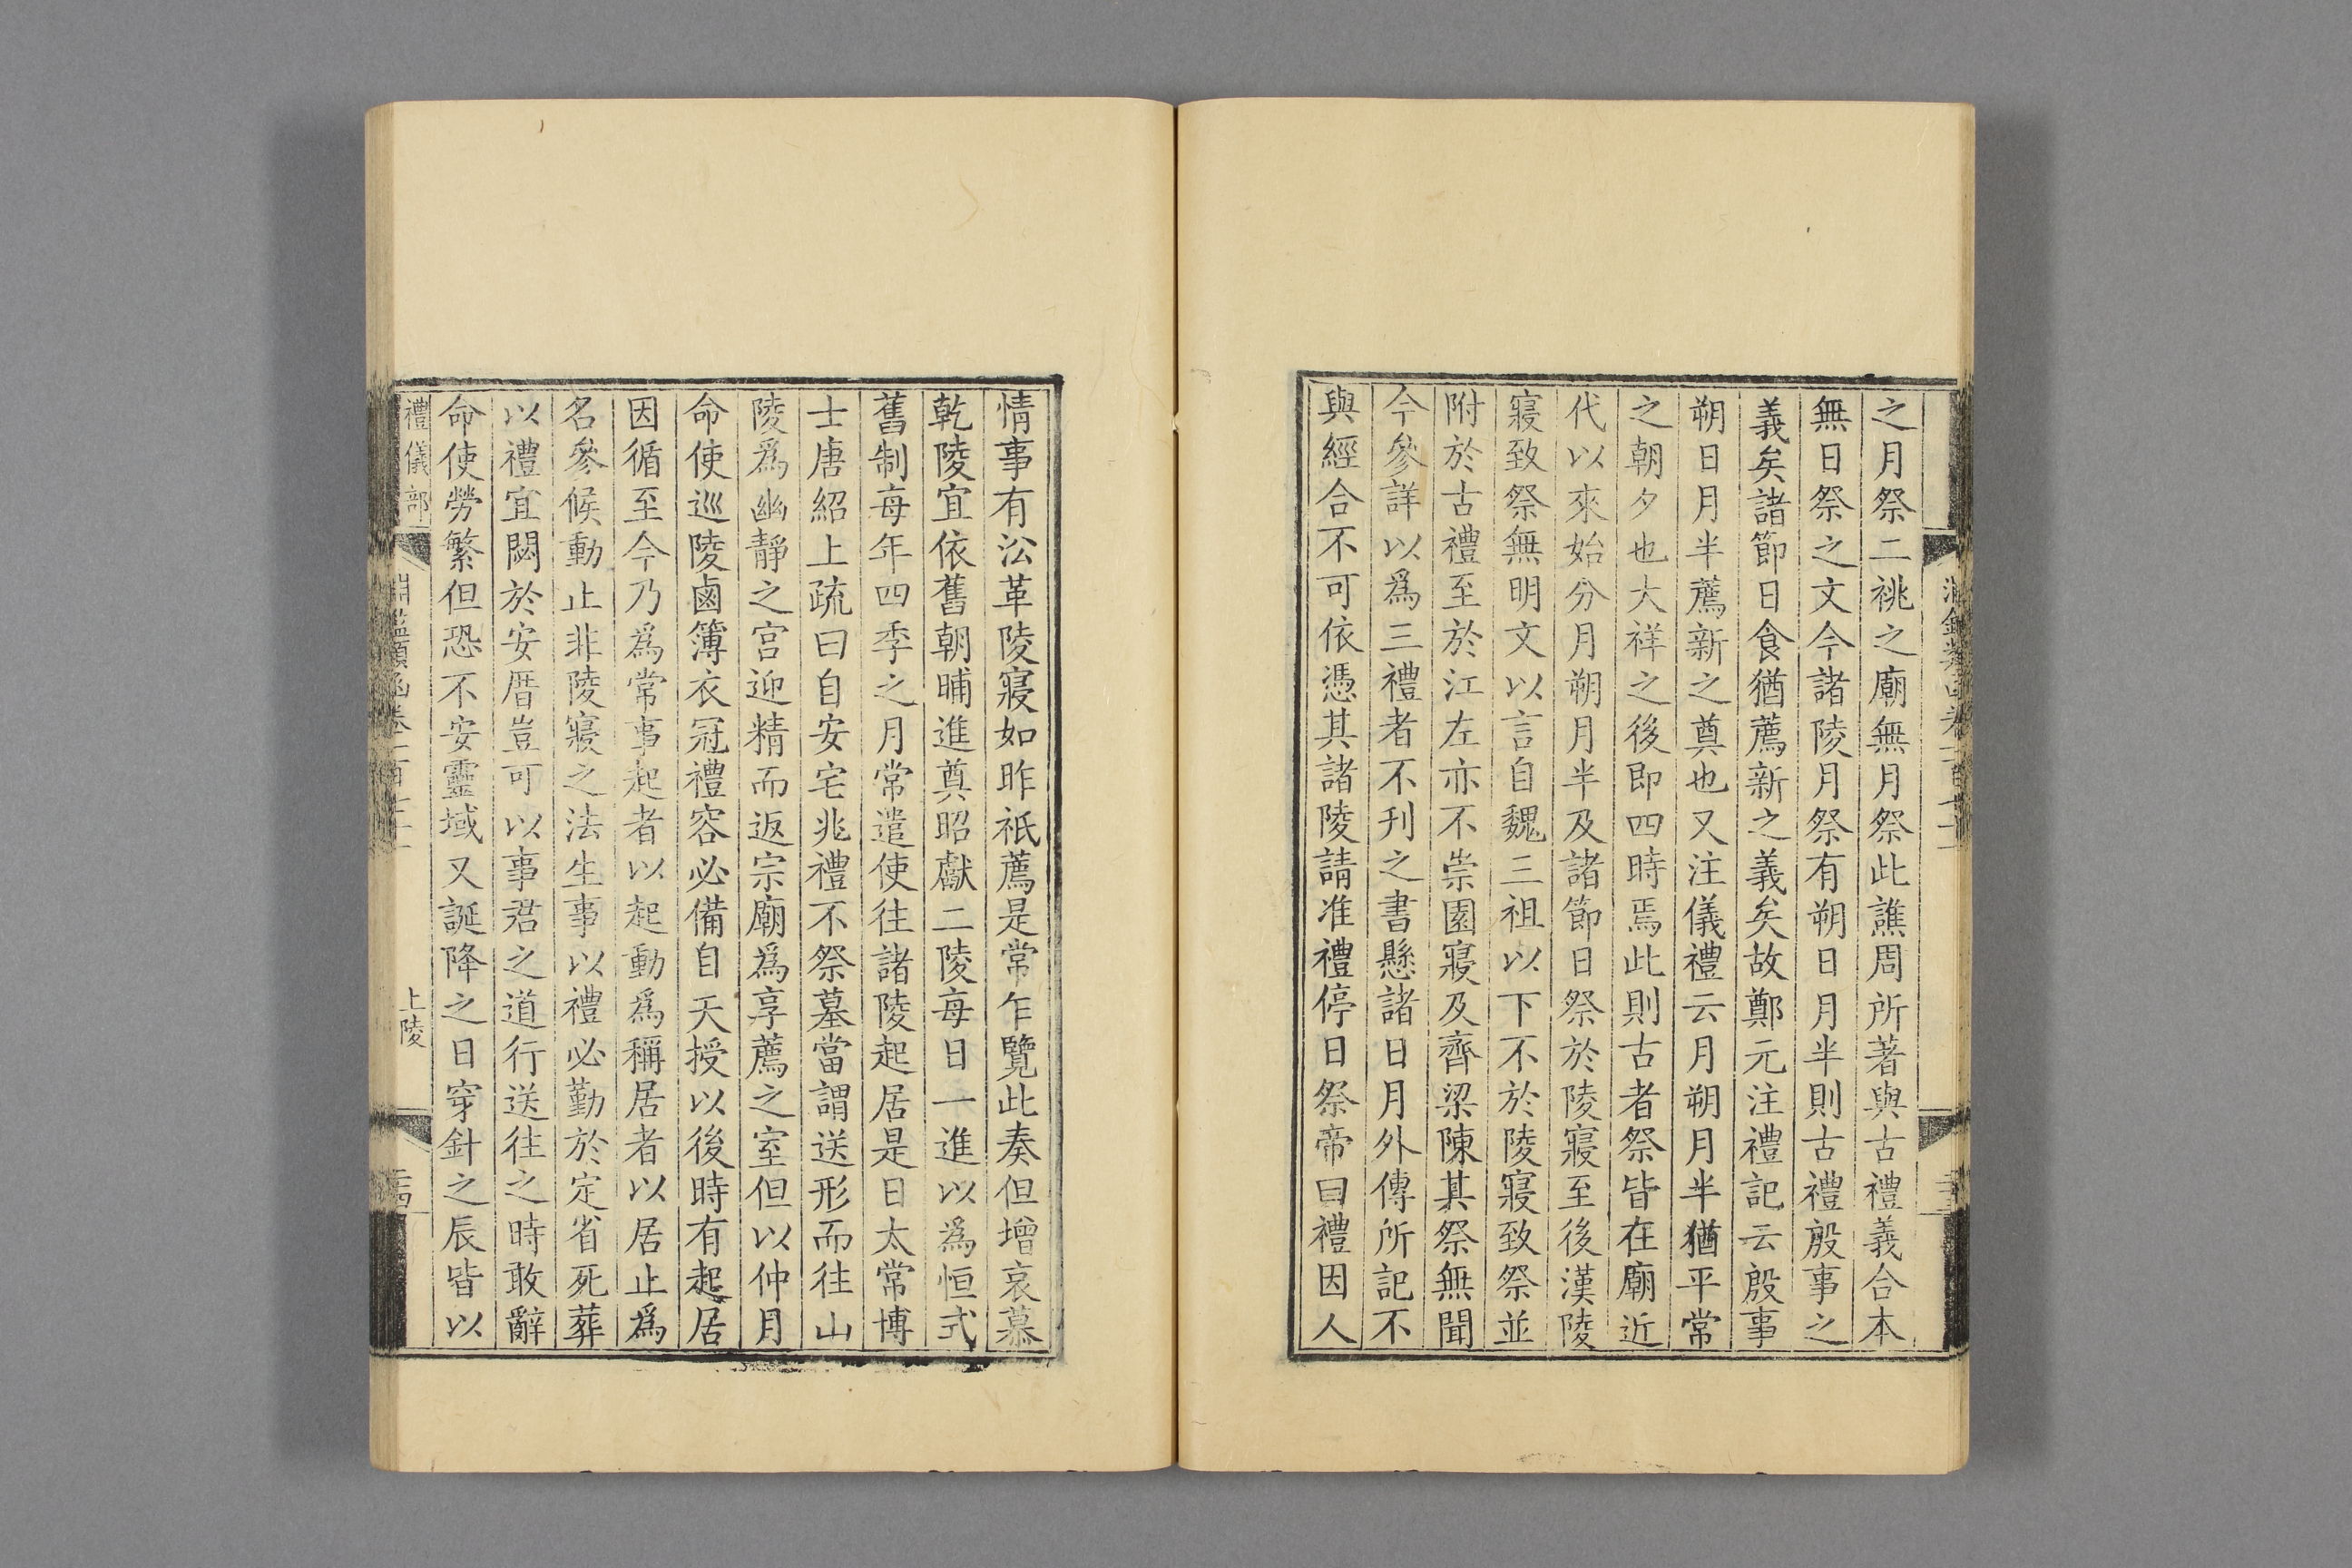 之月祭二祧之廟無月祭此譙周所著與古禮義合本
無日祭之文今諸陵月祭有朔日月半則古禮殷事之
義矣諸節日食猶薦新之義矣故鄭元注禮記云殷事
朔日月半薦新之奠也又注儀禮云月朔月半猶平常
之朝夕也大祥之後即四時焉此則古者祭皆在廟近
代以來始分月朔月半及諸節日祭於陵寢至後漢陵
寢致祭無明文以言自魏三祖以下不於陵寢致祭並
附於古禮至於江左亦不崇園寢及齊梁陳其祭無聞
今參詳以爲三禮者不刊之書懸諸日月外傳所記不
與經合不可依憑其諸陵請准禮停日祭帝曰禮因人
情事有㳂革陵寢如昨祇薦是常乍覽此奏但增哀慕
乾陵宜依舊朝晡進奠昭獻二陵每日一進以爲恒式
舊制每年四季之月常遣使往諸陵起居是日太常博
士唐紹上疏曰自安宅兆禮不祭墓當謂送形而往山
陵爲幽靜之宮迎精而返宗廟爲享薦之室但以仲月
命使巡陵鹵簿衣冠禮容必備自天授以後時有起居
因循至今乃爲常事起者以起動爲稱居者以居止爲
名參候動止非陵寢之法生事以禮必勤於定省死葬
以禮宜閟於安厝豈可以事君之道行送往之時敢辭
命使勞繁但恐不安靈域又誕降之日穿針之辰皆以
禮儀部 淵鑑類函卷一百七十一 上陵